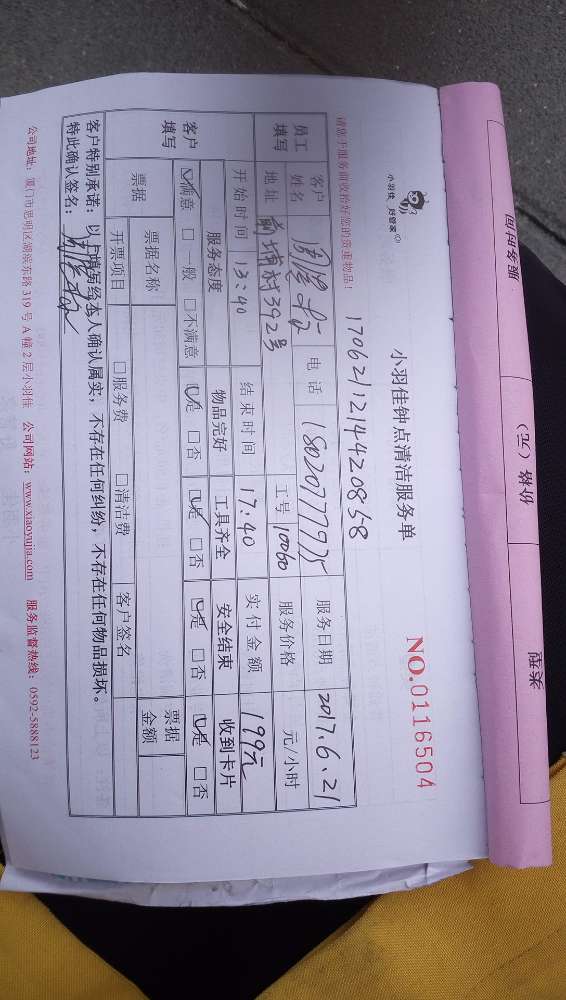 小羽佳 好管家
小羽佳钟点清洁服务单
NO.0116504
1706211214420858
请您于服务前收拾好您的贵重物品!
员工填写 客户姓名 电话 18020777975 服务日期 2017.6.21
地址 前埔村392号 工号 10060 服务价格 元/小时
开始时间 13:40 结束时间 17:40 实付金额 199元
客户填写 服务态度 物品完好 工具齐全 安全结束 收到卡片
☑满意 □一般 □不满意 ☑是 □否 ☑是 □否 ☑是 □否 ☑是 □否
票据 票据名称 票据金额
开票项目 □服务费 □清洁费 客户签名
客户特别承诺:以上填写经本人确认属实,不存在任何纠纷,不存在任何物品损坏。
特此确认签名:
公司地址:厦门市思明区湖滨东路319号A幢2层小羽佳 公司网站:www.xiaoyujia.com 服务监督热线:0592-5888123
服务时间
价格(元)